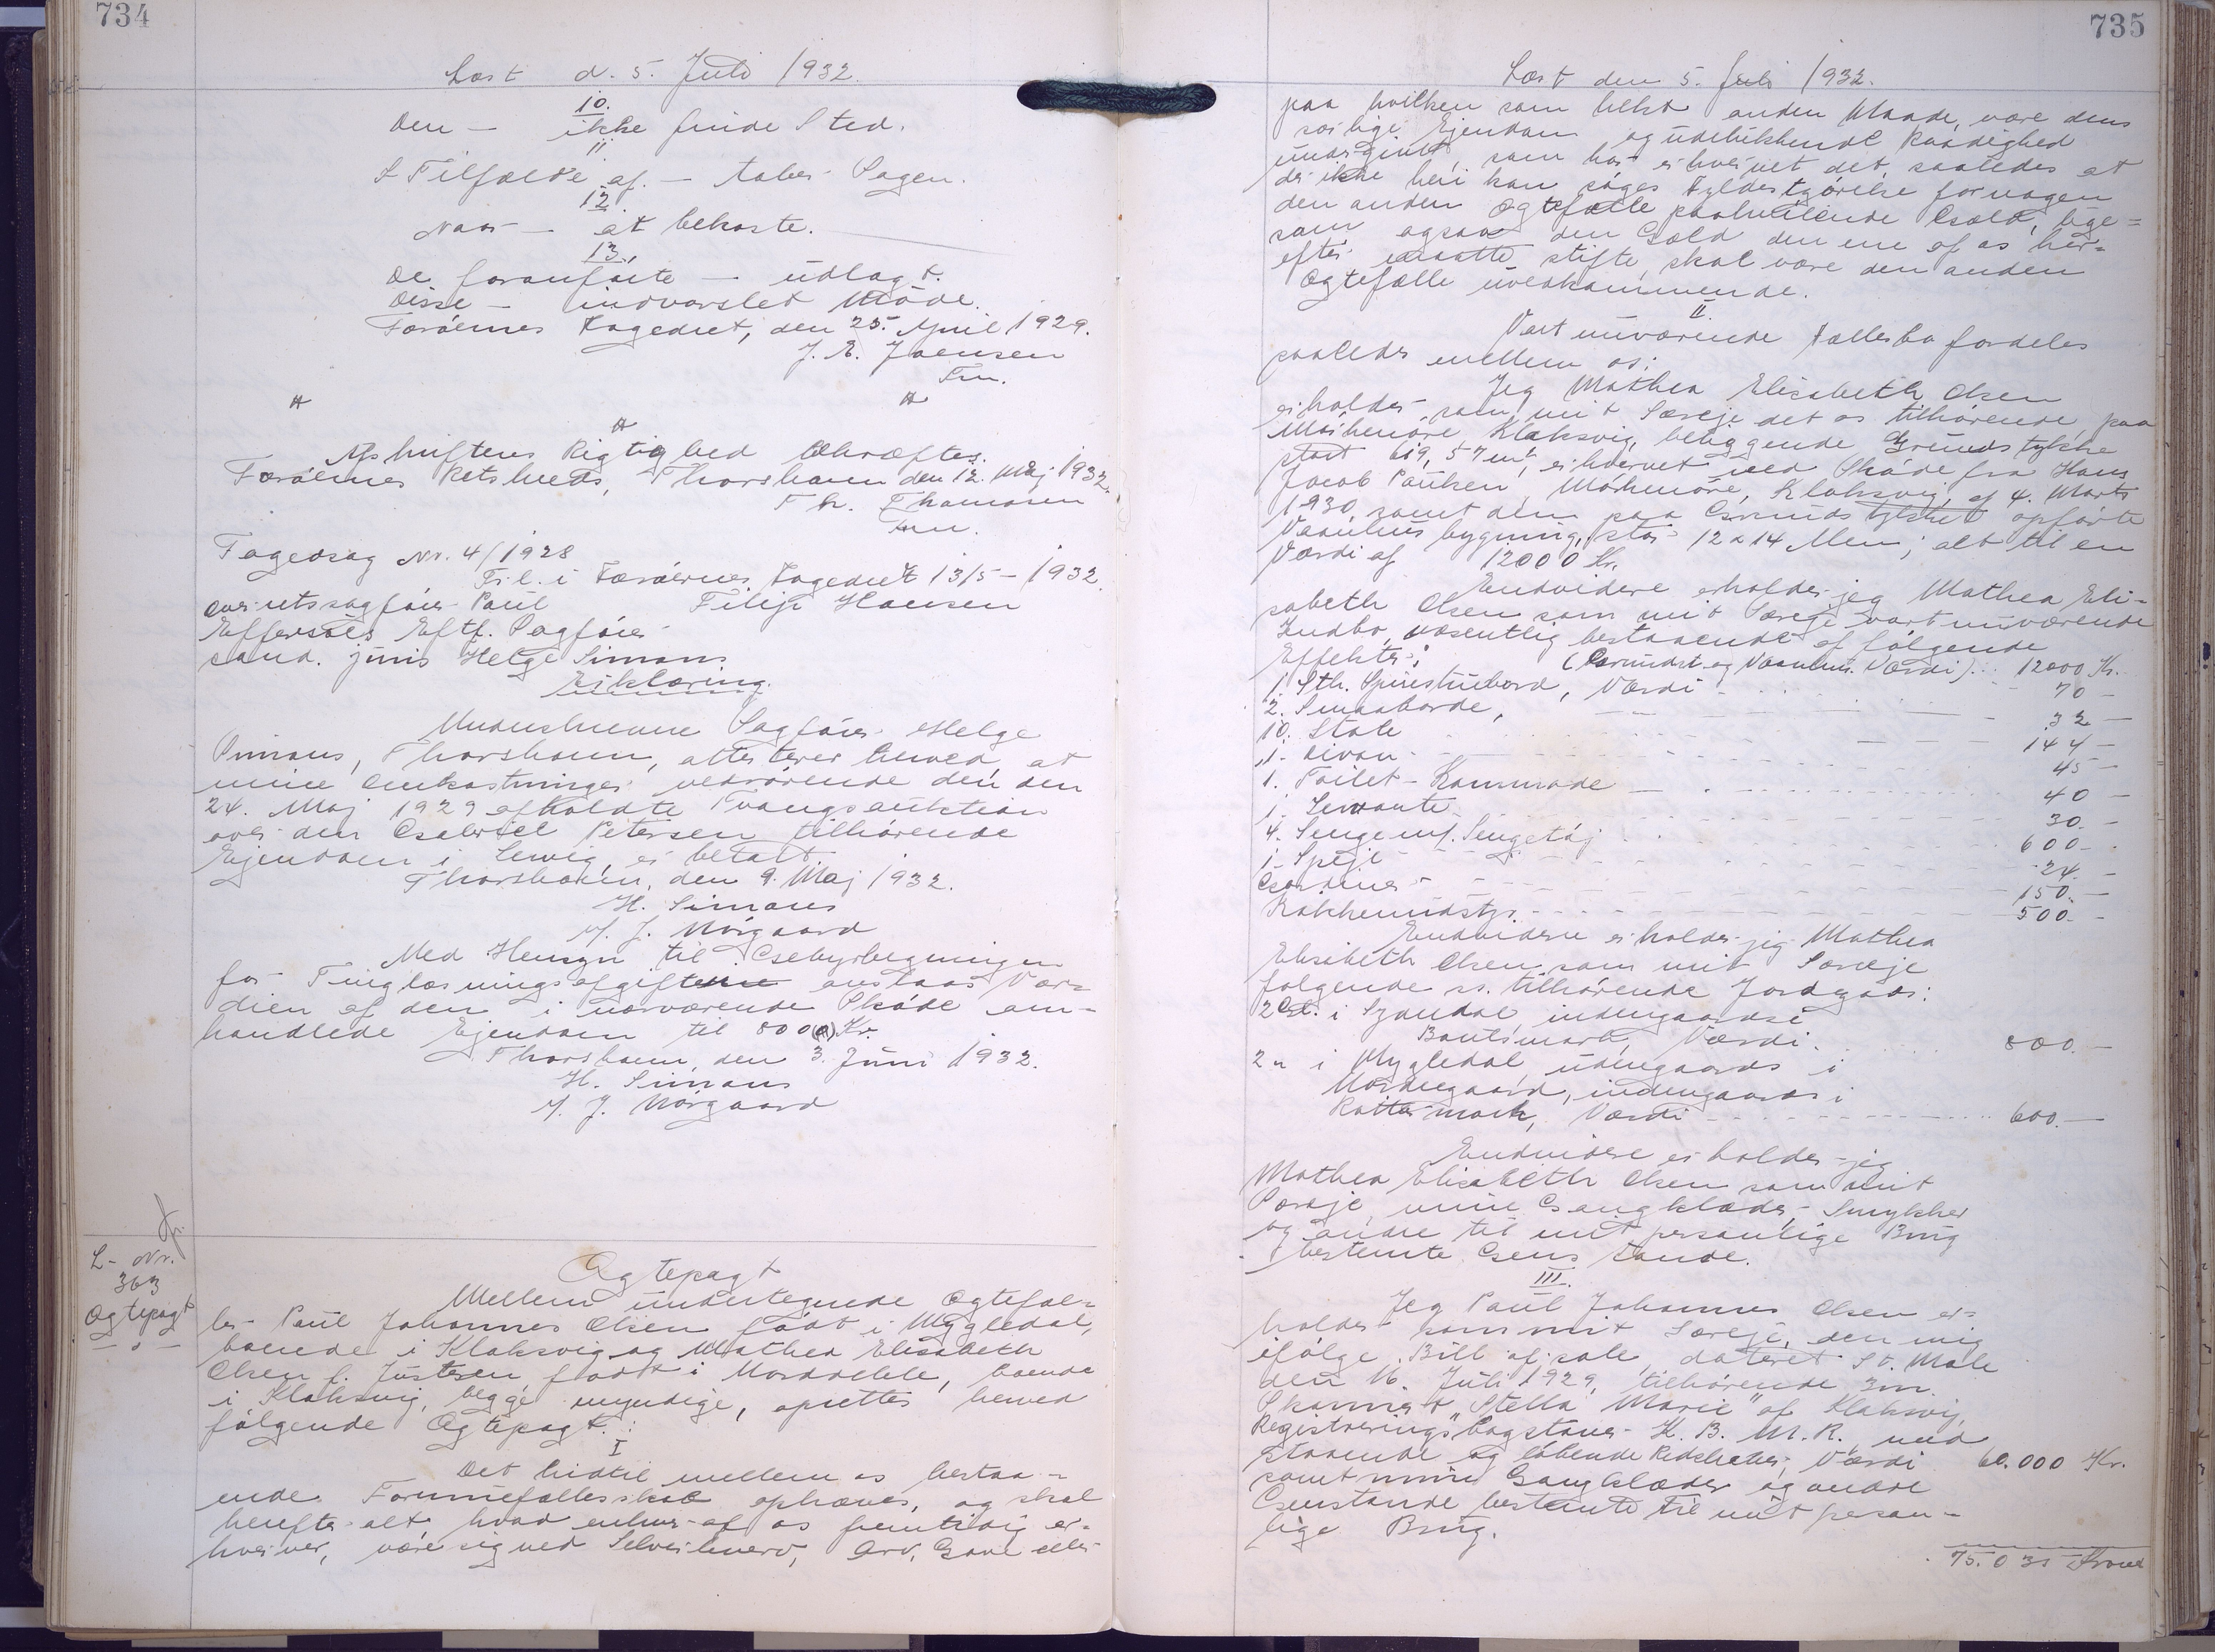 734
Læst d. 5. Juli 1932.
10.
Den — ikke finde Sted.
11
I Tilfælde af — taber Sagen.
12.
Naar — at bekoste.
13.
De foranførte — udlagt.
Disse — indvarslet Møde.
Færøernes Fogedret, den 25. April 1929.
J. E. Joensen
Fm.
Afskriftens Rigtighed bekræftes.
Færøernes Retskreds, Thorshavn den 12. Maj 1932.
Th. Thomsen
Fm.
Fogedsag Nr. 4/1928
Fr.l. i Færøernes Fogedret 13/5 - 1932.
Overretssagfører Paul Filip Hansen
Effersøes Eftf. Sagfører
cand. juris Helge Simans
Erklæring.
Medunderskrevne Sagfører Helge
Simans, Thorshavn, attesterer herved, at
mine Omkostninger vedrørende den den
24. Maj 1929 afholdte Tvangsauktion
over den Gabriel Petersen tilhørende
Ejendom i Lervig, er betalt.
Thorshavn, den 9. Maj 1932.
H. Simans
/ J. Nórgaard
Med Hensyn til Gebyrberegningen
for Tinglæsningsafgiftene anslaas Vær=
dien af den i nærværende Skøde om=
handlede Ejendom til 8000 Kr.
Thorshavn, den 3. Juni 1932.
H. Simans
/ J. Nórgaard
L- Nr.
363
Ægtepagt
Ægtepagt
Mellem undertegnede Ægtefæl=
ler Paul Johannes Olsen født i Mygledal,
boende i Klaksvig og Mathea Elisabeth
Olsen f. Justesen født i Norddeble, boende
i Klaksvig, begge myndige, oprettes herved
følgende Ægtepagt:
I
Det hidtil mellem os bestaa=
ende Formuefællesskab ophæves, og skal
herefter alt, hvad enhver af os fremtidig er=
hverver, være sig ved Selverhverv, Arv, Gave eller
735
Læst den 5. Juli 1932.
paa hvilken som helst anden Maade, være dens
særlige Ejendom og udelukkende Raadighed
undergivet, som har erhvervet det, saaledes at
der ikke heri kan søges Fyldestgørelse for nogen
den anden Ægtefælle paahvilende Gæld, lige=
som ogsaa den Gæld den ene af os her=
efter maatte stifte, skal være den anden
Ægtefælle uvedkommende.
II.
Vort nuværende Fællesbo fordeles
saaledes mellem os:
Jeg Mathea Elisabeth Olsen
erholder som mit Særeje det os tilhørende paa
Klaksvig, beliggende Grundstykke
stort 619,57 m², erhvervet ved Skøde fra Hans
Jacob Poulsen, Klaksvig, af 4. Marts
1930, samt den paa Grundstykket opførte
Vaaningsbygning, stor 12 x 14 Alen; alt til en
Værdi af 12000 Kr.
Endvidere erholder jeg Mathea Eli-
sabeth Olsen som mit Særeje vort nuværende
Indbo væsentlig bestaaende af følgende
Effekter: (Grundst. og Vaanhus. Værdi) .. 12000 Kr.
1. Stk. Spisestuebord, Værdi - 70 -
2. Smaaborde, - 32 -
10. Stole - 144 -
1. Divan - 45 -
1. Toilet-Kommode - 40 -
1. Servante - 30. -
4. Senge m/. Sengetøj - 600. -
1. Spejl - 24. -
Gardiner - 150. -
Køkkenudstyr - 500. -
Endvidere erholder jeg Mathea
Elisabeth Olsen som mit Særeje
følgende os tilhørende Jordgods:
2 Gl. i Syndal indengaards i
Værdi. 800. -
2 " i Mygledal udengaards i
Nordregaard, indengaards i
Værdi - 600. -
Endvidere erholder jeg
Mathea Elisabeth Olsen som mit
Særeje mine Gangklæder, Smykker
og andre til mit personlige Brug
bestemte Genstande.
III.
Jeg Paul Johannes Olsen er=
holder som mit Særeje, den mig
ifølge Bill of sale, dateret St. Malo
den 16. Juli 1929, tilhørende 3m.
Skonnert "Stella Marie" af Klaksvig,
Registreringsbogstaver K. B. M. R. med
staaende og løbende Redskaber, Værdi 60.000 Kr.
samt mine Gangklæder og andre
Genstande bestemte til mit person=
lige Brug.
75.035 Kroner